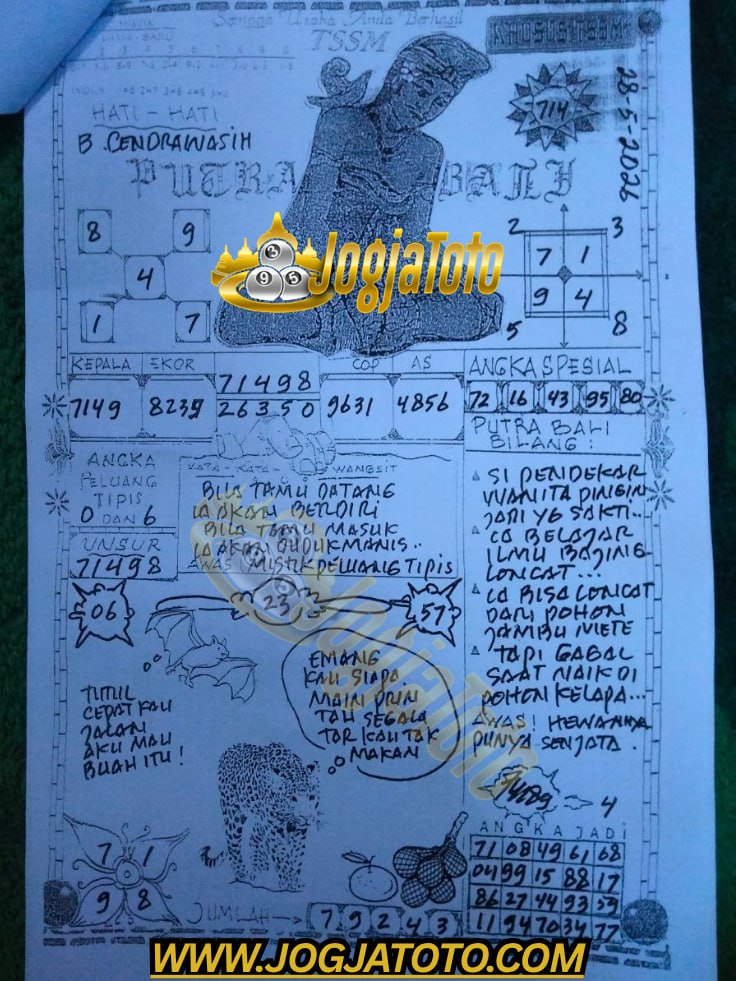 Semoga Usaha Anda Berhasil
TSSM
KHUSUS TSSM
28-5-2026
714
HATI - HATI
B. CENDRAWASIH
PUTRA BALI
8 9
4
1 7
2 3
7 1
9 4
5 8
JogjaToto
KEPALA EKOR COP AS
7149 8235 71498 9631 4856
26350
ANGKA SPESIAL
72 16 43 95 80
ANGKA
PELUANG
TIPIS
0 DAN 6
UNSUR
71498
KATA - KATA WANGSIT
BILA TAMU DATANG
IA AKAN BERDIRI
BILA TAMU MASUK
IA AKAN DUDUK MANIS..
AWAS MISTIK PELUANG TIPIS
PUTRA BALI
BILANG :
SI PENDEKAR
WANITA PINGIN
JADI YG SAKTI..
IA BELAJAR
ILMU BAJING
LONCAT...
IA BISA LONCAT
DARI POHON
JAMBU METE
TAPI GAGAL
SAAT NAIK DI
POHON KELAPA...
AWAS! HEWANNYA
PUNYA SENJATA.
06 23 57
JogjaToto
EMANG
KAU SIAPA
MAIN PRIN
TAH SEGALA
TAR KAU TAK
MAKAN
CEPAT KAU
JALAN
AKU MAU
BUAH ITU!
4
ANGKA JADI
71 08 49 61 68
04 99 15 88 17
86 27 44 93 59
11 94 70 34 77
7 1
9 8
JUMLAH
7 9 2 4 3
WWW.JOGJATOTO.COM